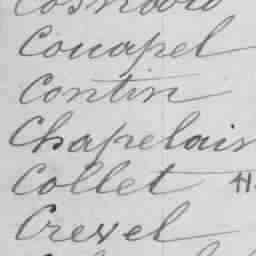 Couapel
Contin
Chapelain
Collet H.
Crexel